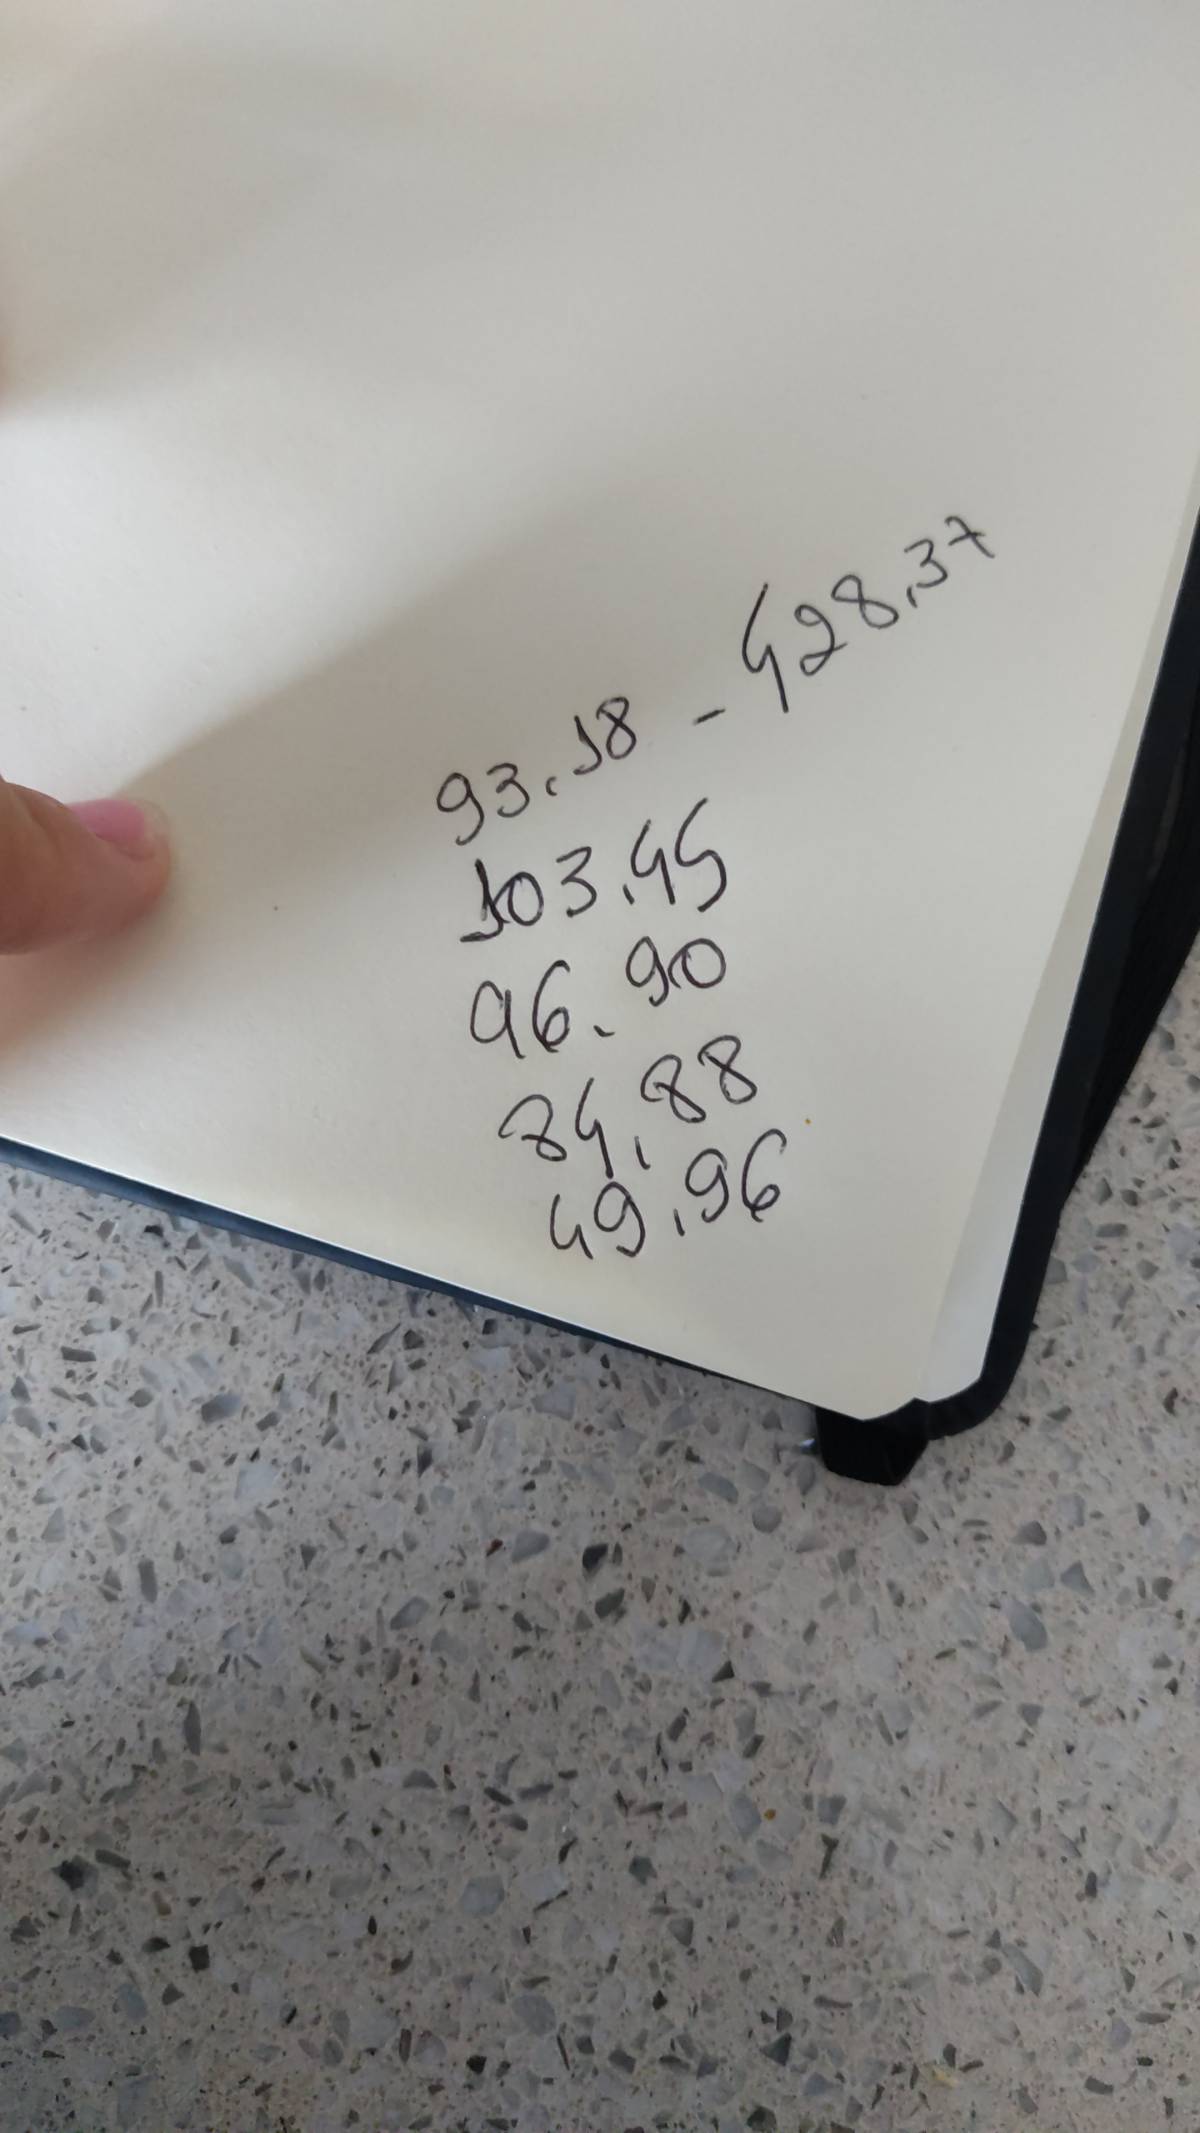 93.18 - 428.37
103.45
96.90
84.88
49.96